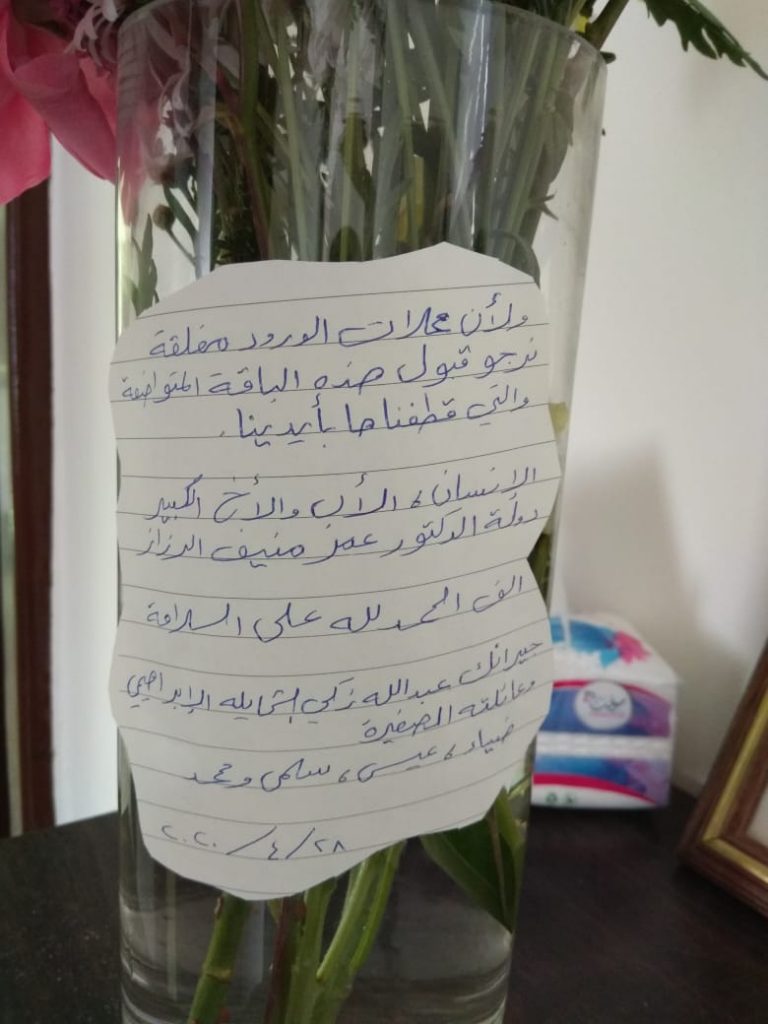 ولأن محلات الورود مغلقة
نرجو قبول هذه الباقة المتواضعة
والتي قطفناها بأيدينا.
الإنسان، الأب والأخ الكبير
دولة الدكتور عمر منيف الرزاز
الف الحمد لله على السلامة
جيرانك عبدالله زكي الشمايله الإبراهيمي
وعائلته الصغيرة
ضياء، عيسى، سلمى ومحمد
٢٠٢٠/٤/٢٨